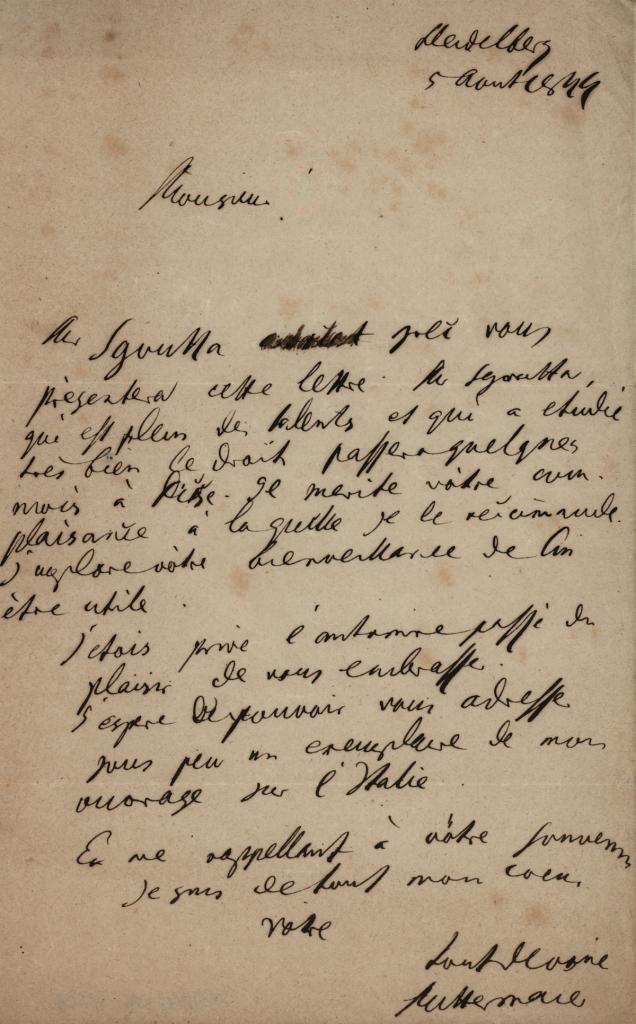 Heidelberg
5 Aout 1844
Monsieur!
Mr Sgoutta vous
presentera cette lettre. Mr Sgoutta,
qui est plein de talents et qui a etudié
très bien le droit passera quelques
mois à Pise. Il merite vôtre com-
plaisance à laquelle je le recommande.
J'implore vôtre bienveillance de lui
être utile.
J'etois privé l'automne passé du
plaisir de vous embrasser.
J'espere de pouvoir vous adresser
sous peu un exemplaire de mon
ouvrage sur l'Italie
En me rappellant à vôtre souvenir
Je suis de tout mon coeur
Votre
tout devoué
Mittermaier